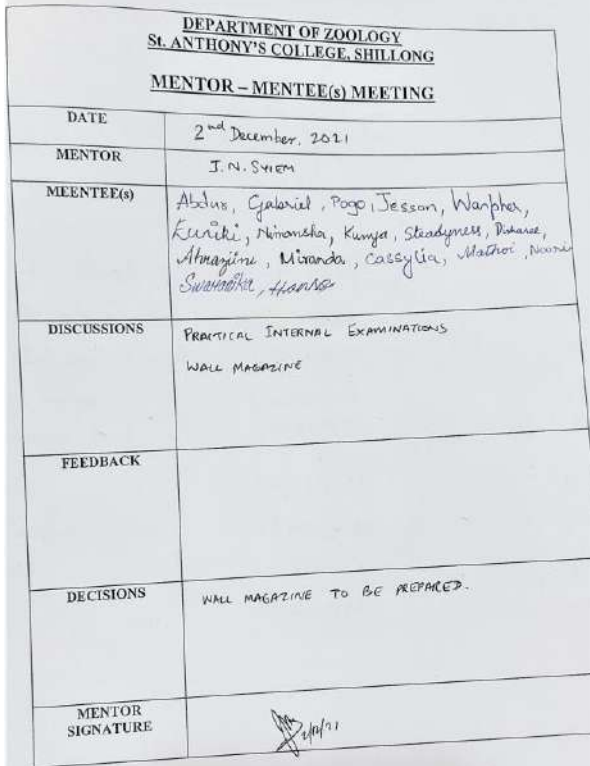 DEPARTMENT OF ZOOLOGY
St. ANTHONY'S COLLEGE, SHILLONG
MENTOR – MENTEE(s) MEETING
DATE
2nd December, 2021
MENTOR
I.N. SYIEM
MEENTEE(s)
Abdus, Gabriel, Pogo, Jesson, Wanpher,
Kuniki, Kumya, Steadyness,
Miranda, Cassylia, Mathoi,
DISCUSSIONS
PRACTICAL INTERNAL EXAMINATIONS
WALL MAGAZINE
FEEDBACK
DECISIONS
WALL MAGAZINE TO BE PREPARED.
MENTOR
SIGNATURE
2/12/21